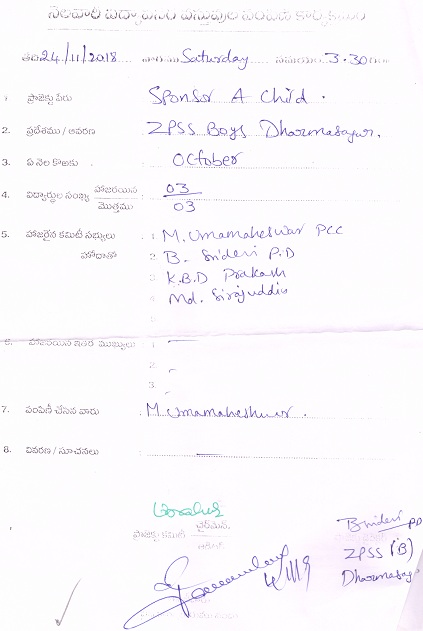 నెలవారీ విద్యా పరమైన వస్తువుల పంపిణీ కార్యక్రమం
తేది 24/11/2018 వారము Saturday సమయం 3.30
1. ప్రాజెక్టు పేరు Sponsor A Child.
2. ప్రదేశము / ఆవరణ : ZPSS Boys Dharmasagar.
3. ఏ నెల కొఱకు : October
4. విద్యార్థుల సంఖ్య హాజరయిన : 03
మొత్తము 03
5. హాజరైన కమిటీ సభ్యులు : 1 M. Umamaheswar PCC
హోదాతో 2 B. Sridevi P.D
3 K.B.D Prakash
4 Md. Sirajuddin
5
6. హాజరయిన ఇతర ముఖ్యులు : 1
2.
3.
7. పంపిణీ చేసిన వారు : M. Umamaheshwar.
8. వివరణ / సూచనలు :
ఛైర్మెన్
ప్రాజెక్టు కమిటీ
BSridevi PD
ZPSS (B)
Dharmasagar